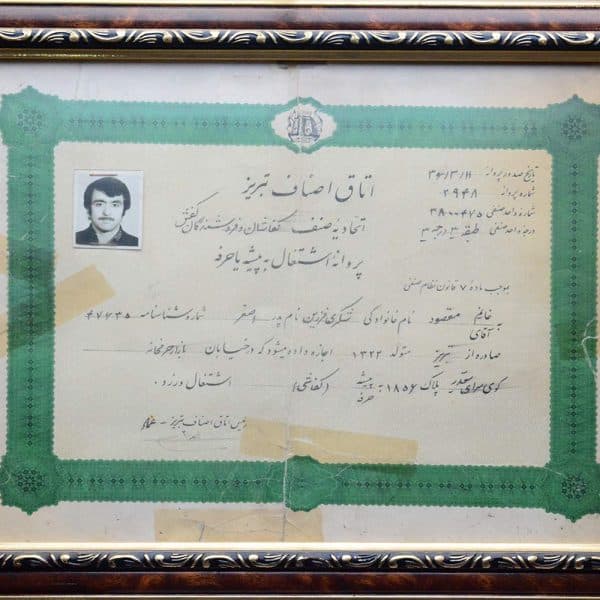 تاریخ صدور پروانه ۳۶/۳/۱۱
شماره پروانه ۲۹۴۸
شماره واحد صنفی ۳۸۰۰۰۴۷۵
درجه واحد صنفی طبقه ۳ درجه ۳
اتاق اصناف تبریز
اتحادیه صنف کفاشان و فروشندگان کفش
پروانه اشتغال به پیشه یا حرفه
بموجب ماده ۷ قانون نظام صنفی
خانم
آقای مقصود نام خانوادگی نام پدر اصغر شماره شناسنامه ۴۷۶۳۵
صادره از تبریز متولد ۱۳۲۲ اجازه داده میشود که در خیابان بازار حرمخانه
کوی سرای پلاک ۱۸۵۶ به پیشه (کفاشی) اشتغال ورزد.
حرفه
رئیس اتاق اصناف تبریز -